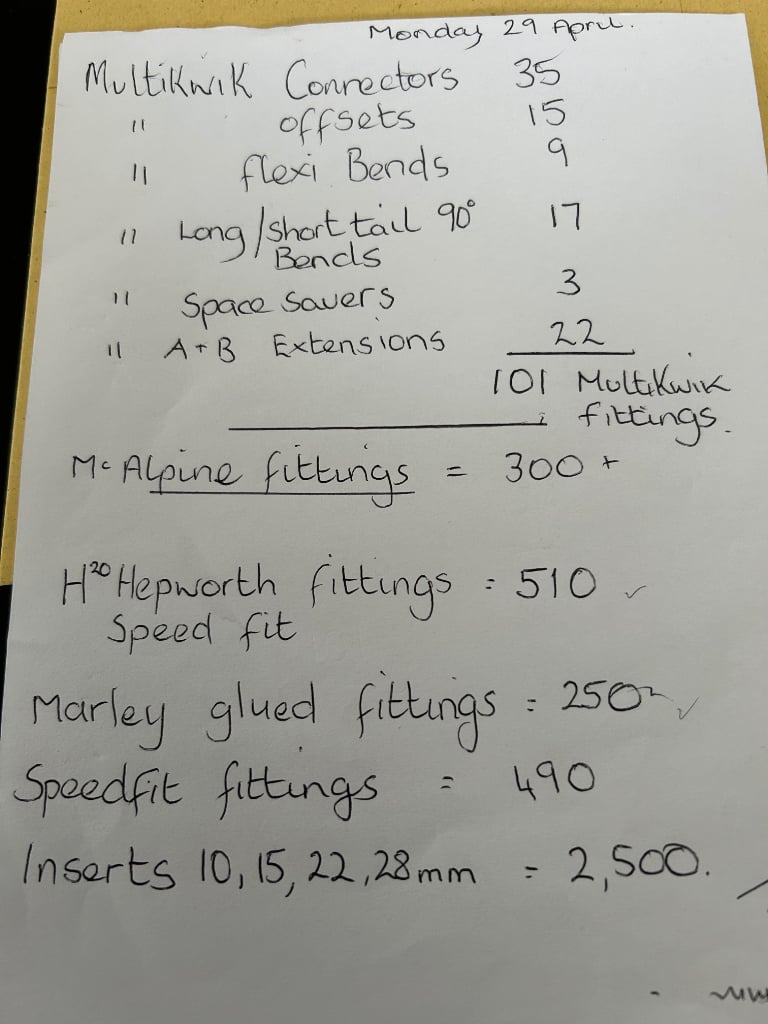 Monday 29 April.
MultiKwik Connectors 35
" offsets 15
" flexi Bends 9
" Long/short tail 90° 17
Bends
" Space Savers 3
" A+B Extensions 22
101 MultiKwik
fittings.
McAlpine fittings = 300+
H²⁰ Hepworth fittings = 510 ✓
Speed fit
Marley glued fittings = 250 ✓
Speedfit fittings = 490
Inserts 10, 15, 22, 28mm = 2,500.